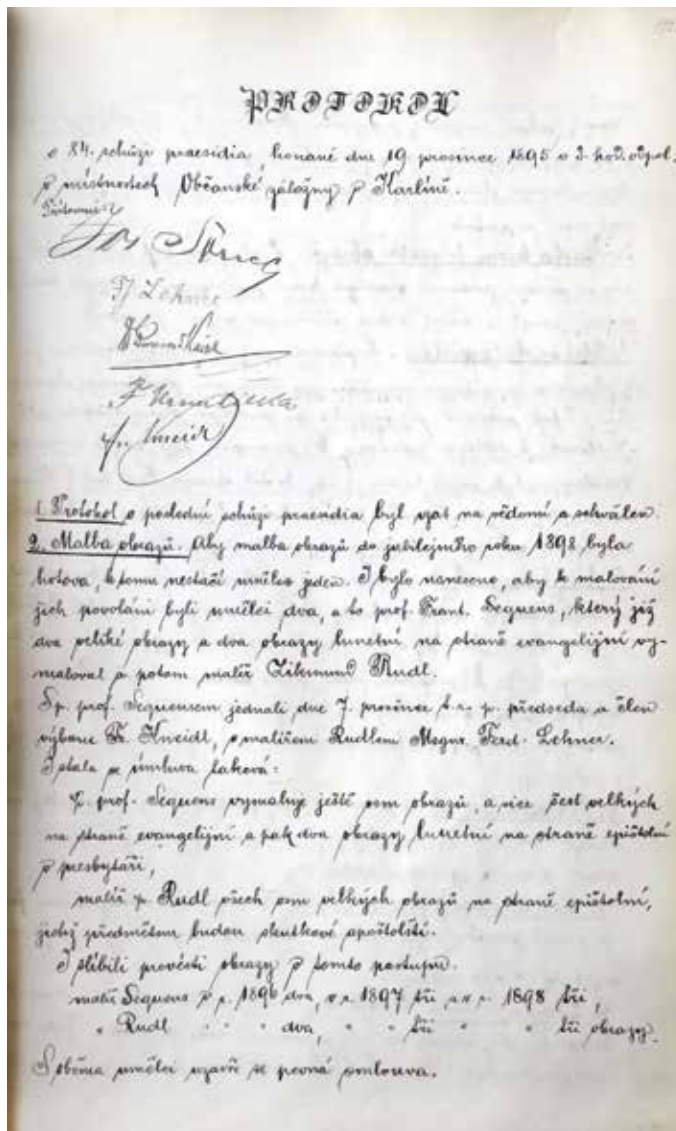 PROTOKOL
o 84. schůzi praesidia, konané dne 19 prosince 1895 o 3. hod. odpol.
v místnostech Občanské záložny v Karlíně.
Přítomni:
F. J. Lehner
Fr. Kneidl
1. Protokol o poslední schůzi praesidia byl vzat na vědomí a schválen.
2. Malba obrazů. Aby malba obrazů do jubilejního roku 1898 byla
hotova, k tomu nestačí umělec jeden. I bylo usneseno, aby k malování
jich povoláni byli umělci dva, a to prof. Frant. Sequens, který již
dva veliké obrazy a dva obrazy lunetní na straně evangelijní vy-
maloval a potom malíř Zikmund Rudl.
S p. prof. Sequensem jednali dne 7. prosince t. r. p. předseda a člen
výboru Fr. Kneidl, s malířem Rudlem Msgnr. Ferd. Lehner.
I stala se úmluva taková:
p. prof. Sequens vymaluje ještě osm obrazů, a sice šest velkých
na straně evangelijní a pak dva obrazy lunetní na straně epištolní
v presbytáři,
malíř p. Rudl všech osm velkých obrazů na straně epištolní,
jichž předmětem budou skutkové apoštolští.
I slíbili provésti obrazy v tomto postupu.
malíř Sequens v r. 1896 dva, v r. 1897 tři a v r. 1898 tři,
" Rudl " " " dva, " " tři " " tři obrazy.
S oběma umělci uzavře se pevná smlouva.